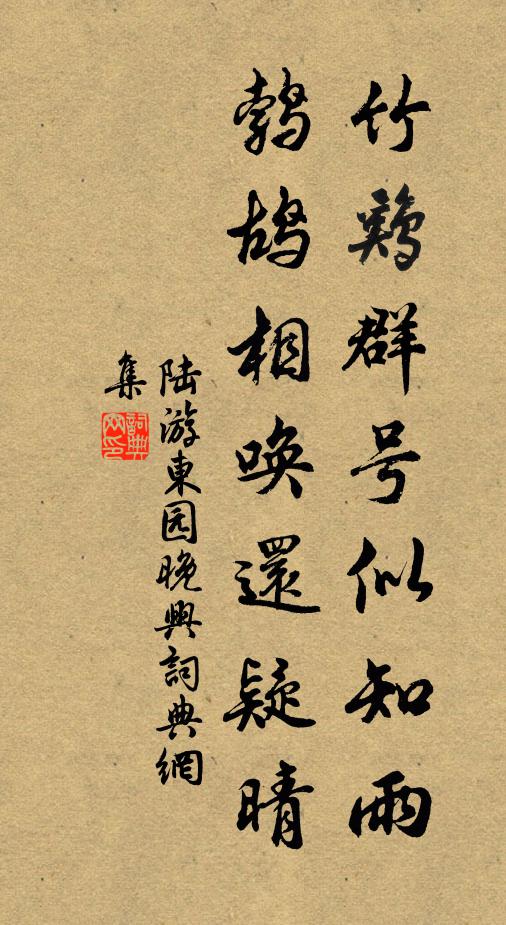 竹鷄群号似知雨
鹁鸪相唤還疑晴
陆游東园晚興詞典網
集
詞典
网印